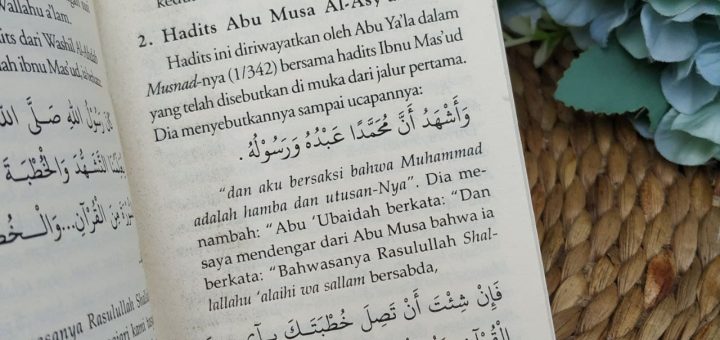 Wallahu a'lam.
dari Washil Al-Ahdab
ibnu Mas'ud,
رَسُوْلُ اللهِ صَلَّى اللهُ
التَّشَهُّدَ وَالْخُطْبَةَ
مِنَ الْقُرْآنِ...وَالْـخُطْ
Rasulullah
2. Hadits Abu Musa Al-Asy
Hadits ini diriwayatkan oleh Abu Ya'la dalam
Musnad-nya (1/342) bersama hadits Ibnu Mas'ud
yang telah disebutkan di muka dari jalur pertama.
Dia menyebutkannya sampai ucapannya:
وَأَشْهَدُ أَنَّ مُحَمَّدًا عَبْدُهُ وَرَسُوْلُهُ .
"dan aku bersaksi bahwa Muhammad
adalah hamba dan utusan-Nya". Dia me-
nambah: "Abu 'Ubaidah berkata: "Dan
saya mendengar dari Abu Musa bahwa ia
berkata: "Bahwasanya Rasulullah Shal-
lallahu 'alaihi wa sallam bersabda,
فَإِنْ شِئْتَ أَنْ تَصِلَ خُطْبَتَكَ بِآيٍ
الْقُرْآنِ